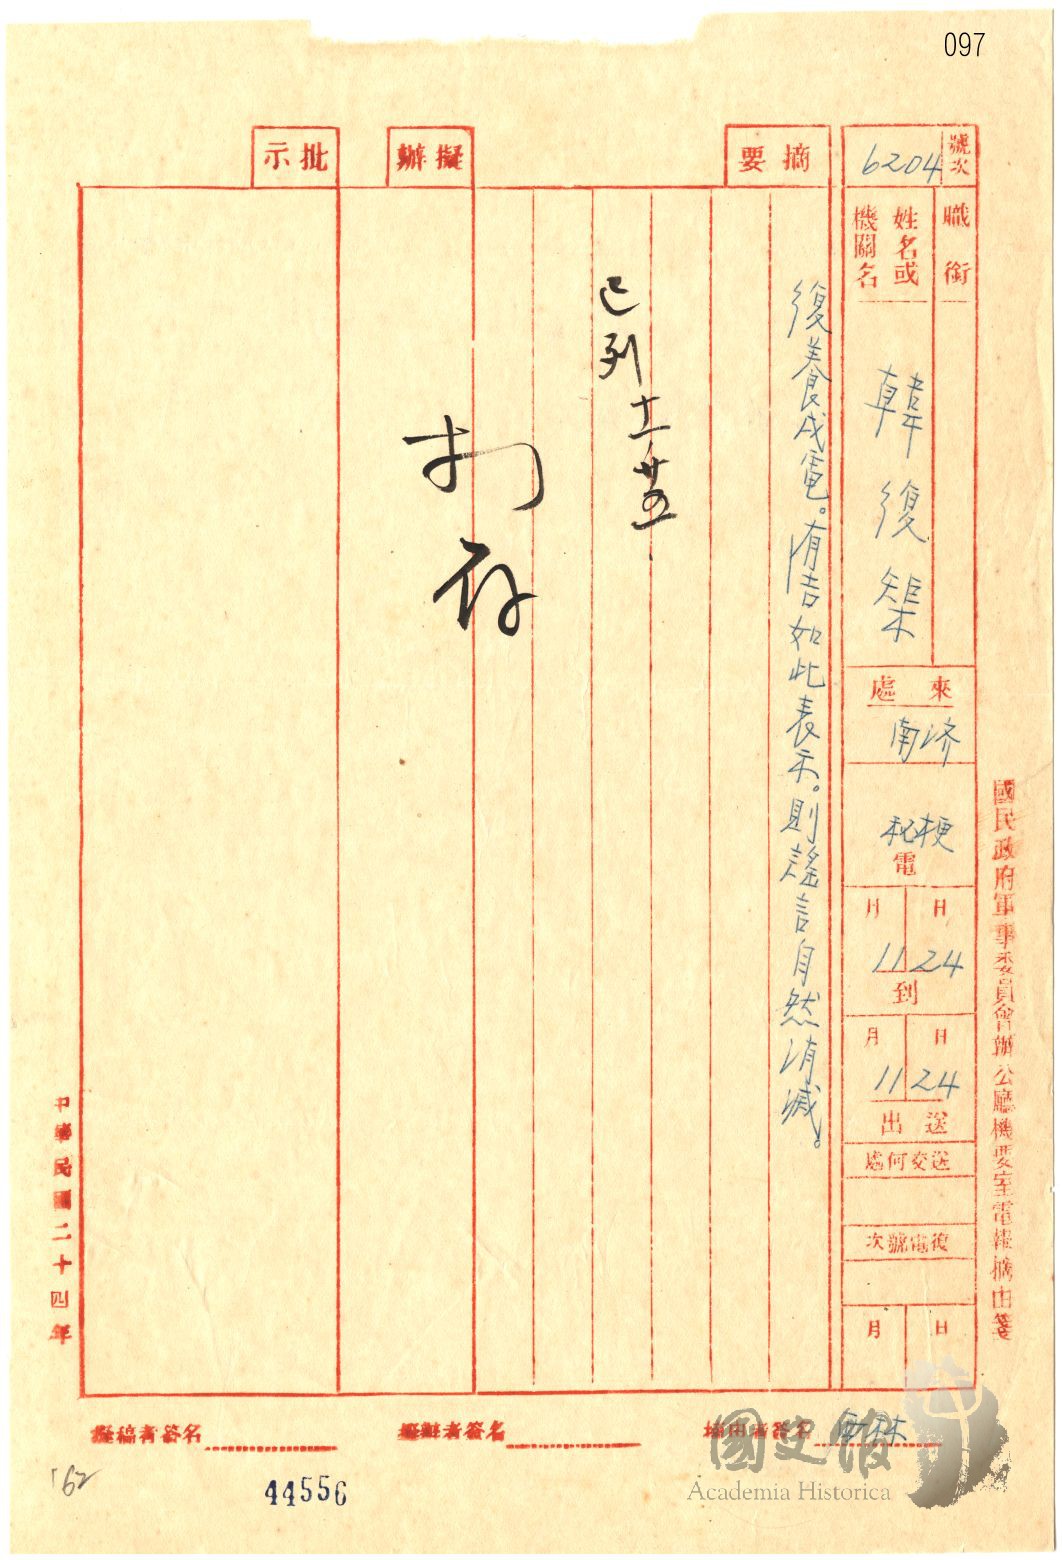 097
號次
6204
職銜
姓名或
機關名
韓復榘
來處
济南
梗秘
電
月 日
11 24
到
月 日
11 24
送出
送交何處
復電號次
月 日
國民政府軍事委員會辦公廳機要室電報摘由箋
摘要
復養戌電。有吉如此表示。則謠言自然消滅。
已列 十一、廿五、
擬辦
存
批示
中華民國二十四年
摘由者簽名
擬辦者簽名
擬稿者簽名
162
44556
國史館
Academia Historica